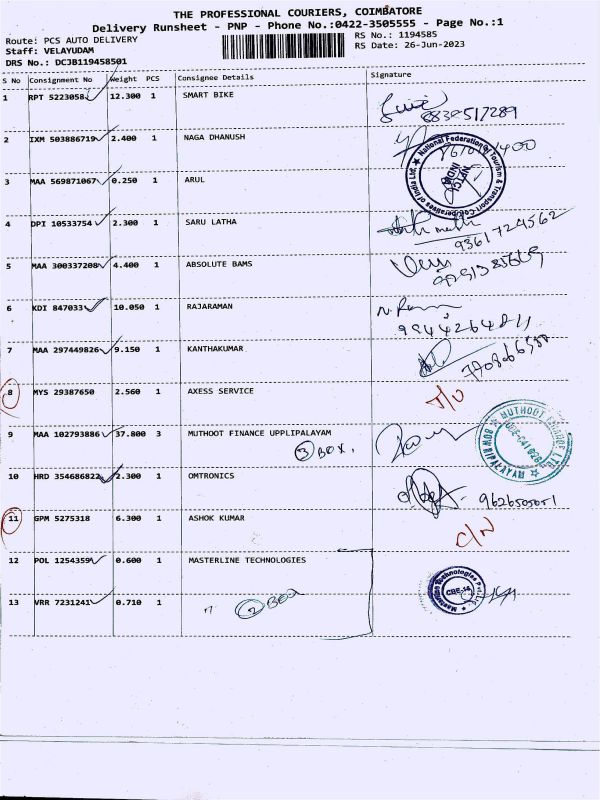 THE PROFESSIONAL COURIERS, COIMBATORE
Delivery Runsheet - PNP - Phone No.:0422-3505555 - Page No.:1
Route: PCS AUTO DELIVERY
RS No.: 1194585
Staff: VELAYUDAM
RS Date: 26-Jun-2023
DRS No.: DCJB119458501
S No Consignment No Weight PCS Consignee Details Signature
1 RPT 5223058 12.300 1 SMART BIKE
2 IXM 503886719 2.400 1 NAGA DHANUSH
National Federation of Tourism & Transport Cooperatives of India Ltd.
3 MAA 569871067 0.250 1 ARUL
4 DPI 10533754 2.300 1 SARU LATHA
9361724562
5 MAA 300337208 4.400 1 ABSOLUTE BAMS
6 KDI 847033 10.050 1 RAJARAMAN
7 MAA 297449826 9.150 1 KANTHAKUMAR
8 MYS 29387650 2.560 1 AXESS SERVICE
9 MAA 102793886 37.800 3 MUTHOOT FINANCE UPPLIPALAYAM
3 BOX.
MUTHOOT FINANCE LTD.
SOWRIPALAYAM
10 HRD 354686822 2.300 1 OMTRONICS
11 GPM 5275318 6.300 1 ASHOK KUMAR
C/N
12 POL 1254359 0.600 1 MASTERLINE TECHNOLOGIES
13 VRR 7231241 0.710 1
2 BOX
Masterline Technologies Pvt. Ltd.